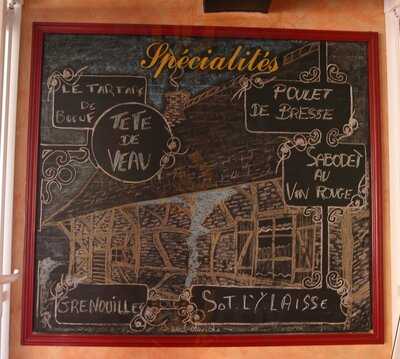 Spécialités
LE TARTARE
DE
BOEUF
TETE
DE
VEAU
POULET
DE BRESSE
SABODET
AU
VIN ROUGE
GRENOUILLES
SOT. L'Y LAISSE